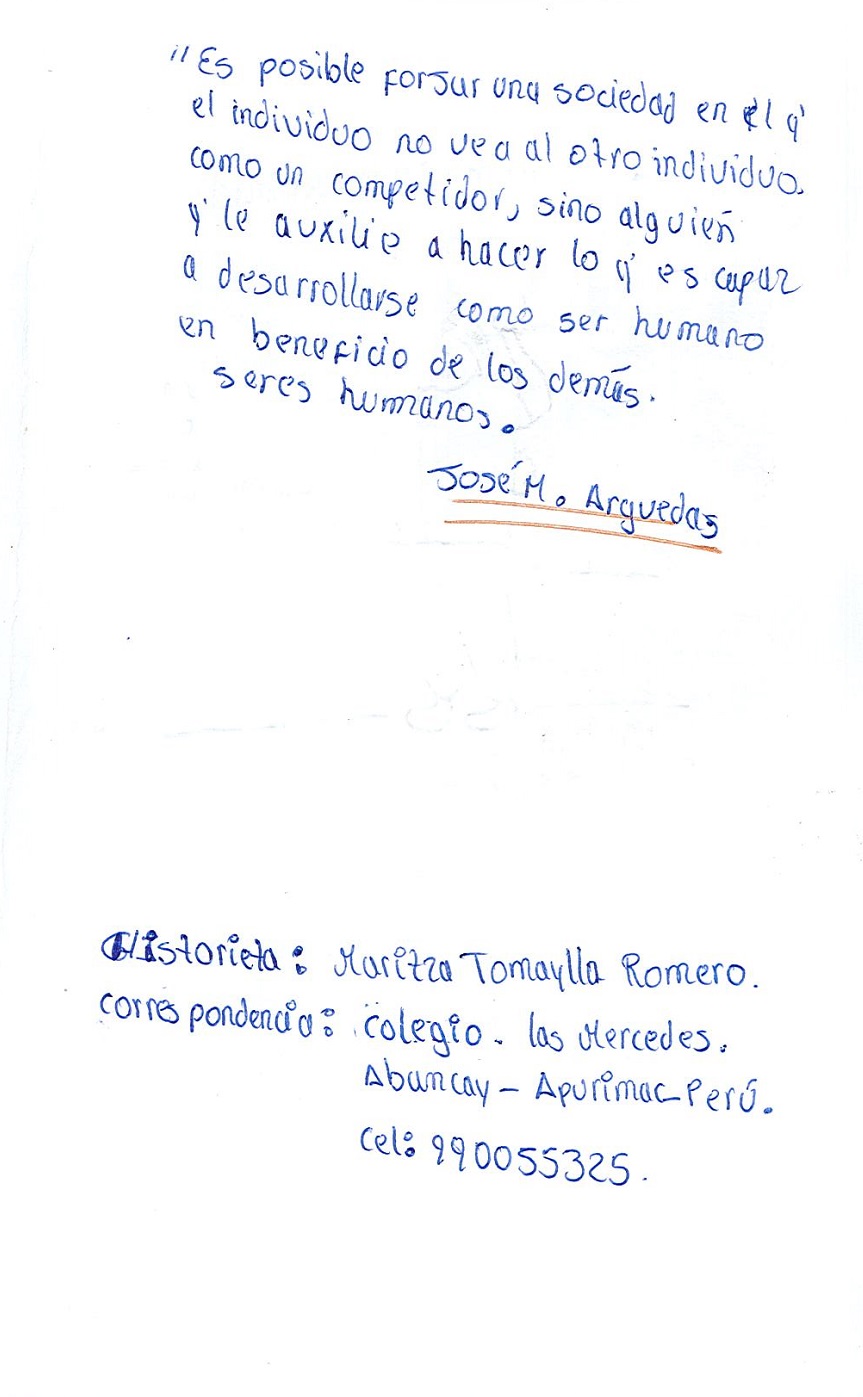 "Es posible forJar una sociedad en el q'
el individuo no vea al otro individuo.
como un competidor, sino alguien
q' le auxilie a hacer lo q' es capaz
a desarrollarse como ser humano
en beneficio de los demás.
seres humanos.
José M. Arguedas
Historieta: Maritza Tomaylla Romero.
correspondencia: colegio. las Mercedes.
Abancay - Apurimac-Perú.
cel: 990055325.